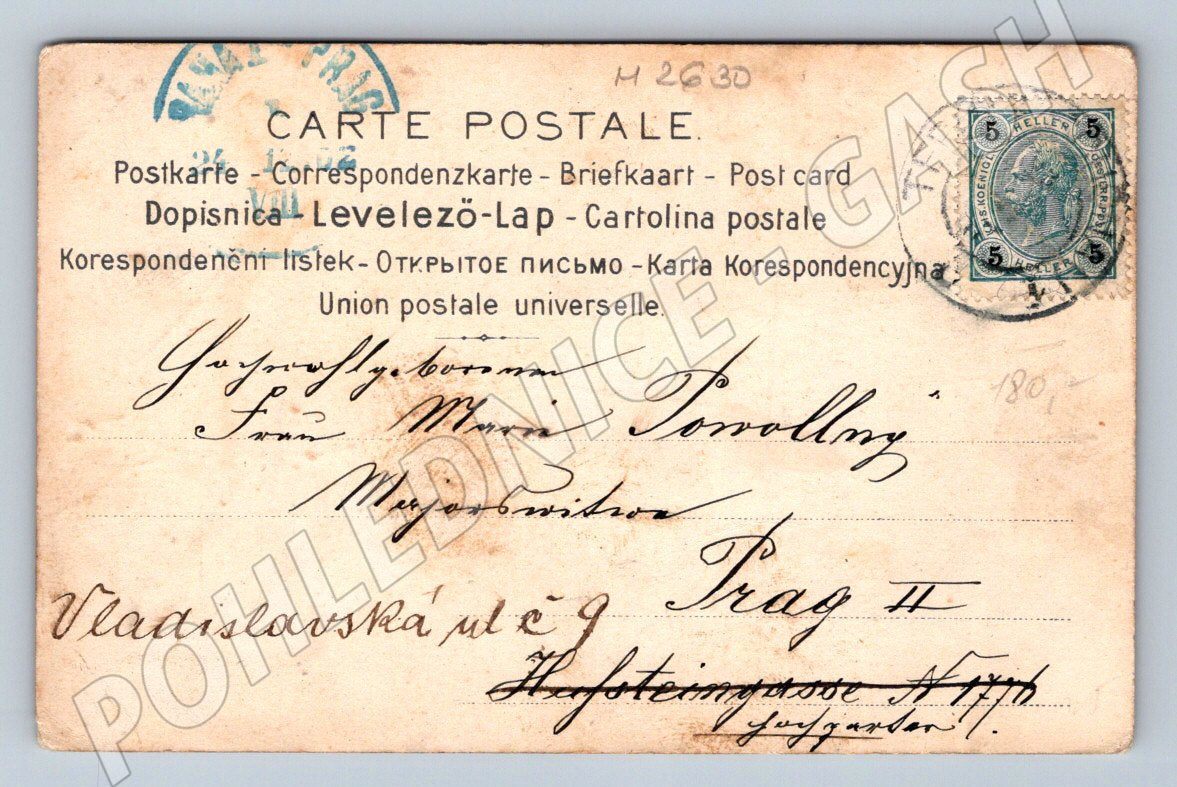 PRAHA PRAG
M 2630
CARTE POSTALE.
24 02
VIII
Postkarte - Correspondenzkarte - Briefkaart - Post card
Dopisnica - Levelező-Lap - Cartolina postale
Korespondenční lístek - Открытое письмо - Karta Korespondencyjna
Union postale universelle.
5 HELLER 5
KAIS. KOENIGL. OESTERR. POST
5 HELLER 5
180,-
Hochwohlgeborenen
Frau Marie Powollny
Majorswitwe
Prag II
Vladislavská ul č 9
Hufsteingasse N 177
hochparterre
POHLEDNICE - GASH